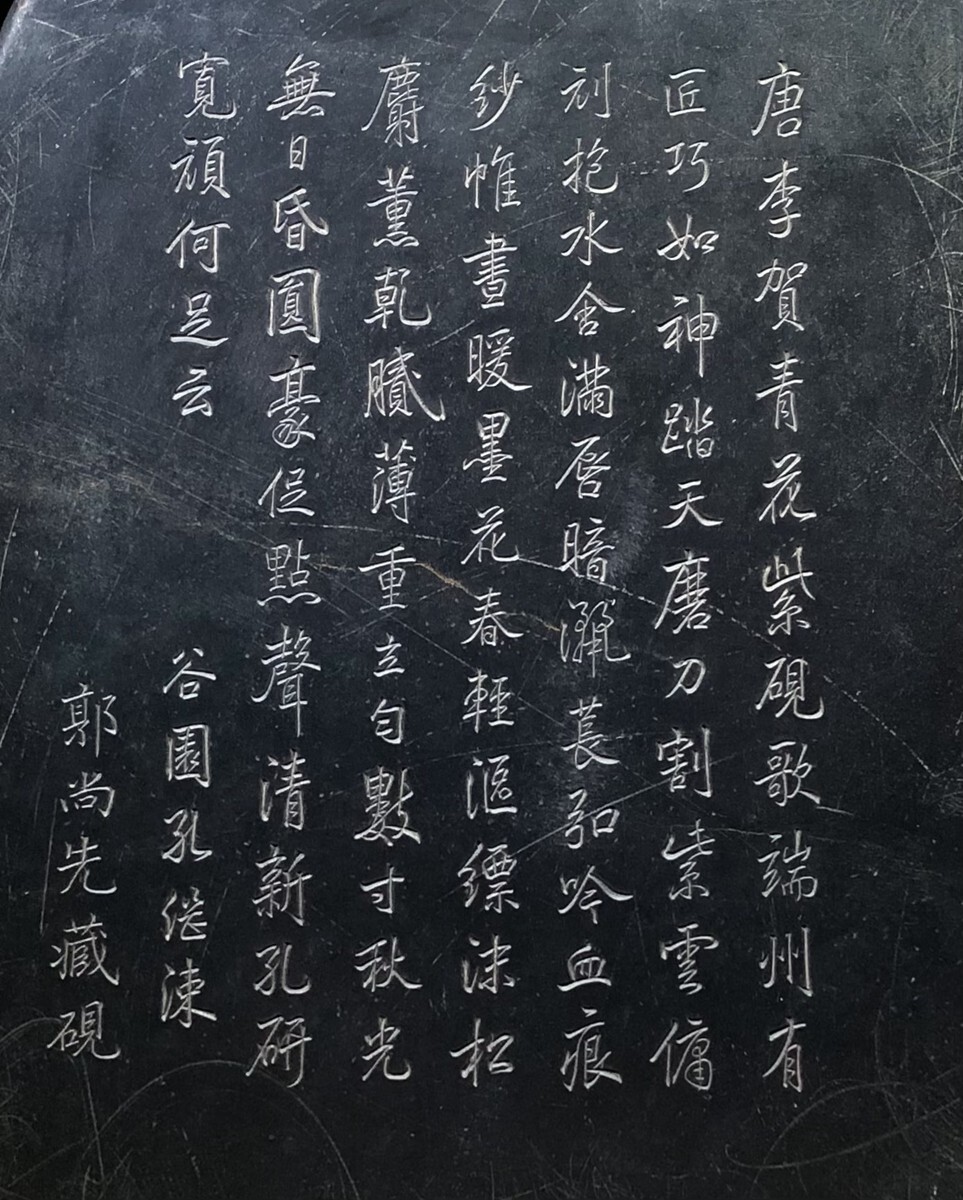 唐李賀青花紫硯歌端州有
匠巧如神踏天磨刀割紫雲傭
刓抱水含滿唇暗灑萇弘吟血痕
紗帷晝暖墨花春輕漚縹沫松
麝薰乾膩薄重立勻數寸秋光
無日昏圓豪促點聲清新孔研
寬頑何足云
谷園孔継涑
郭尚先藏硯